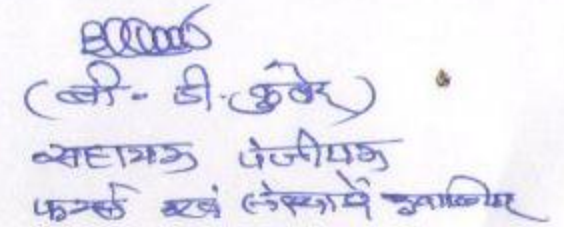 (बी. डी. कुबेर)
सहायक पंजीयक
फर्म्स एवं संस्थायें ग्वालियर